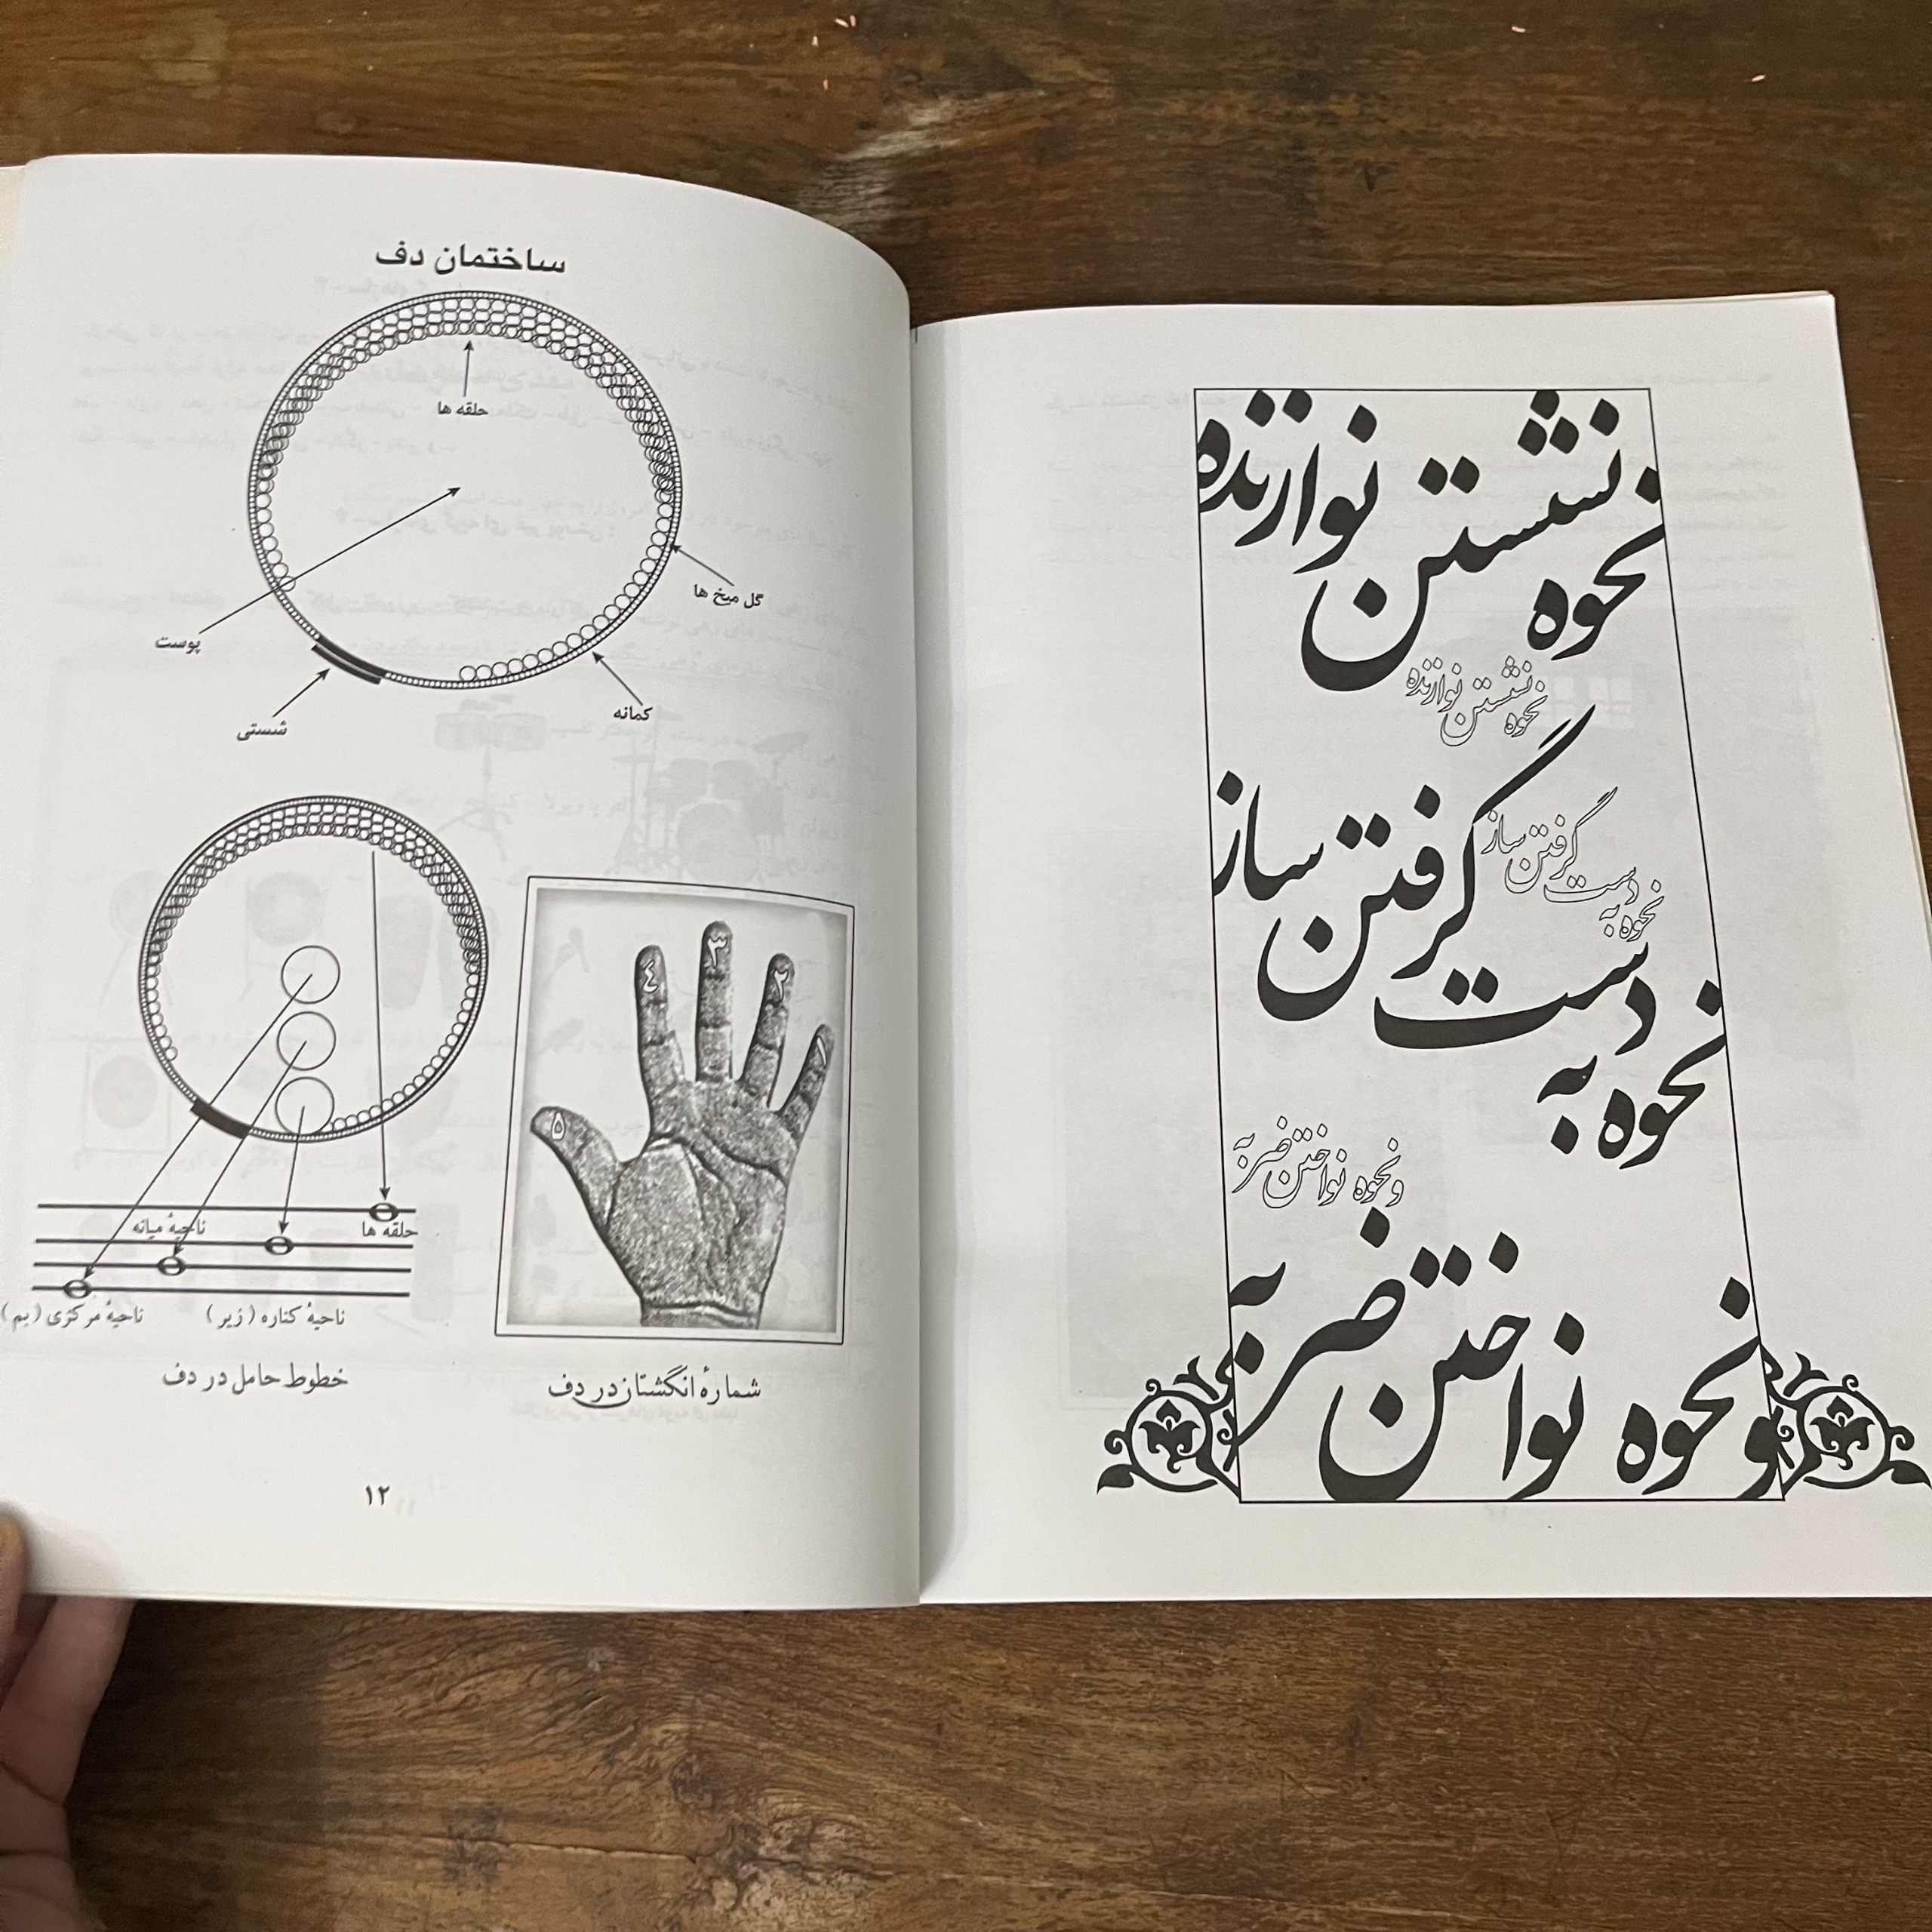 ساختمان دف
حلقه ها
گل میخ ها
پوست
کمانه
شستی
۴
۳
۲
۱
۵
حلقه ها
ناحیهٔ میانه
ناحیهٔ کناره ( زیر )
ناحیهٔ مرکزی ( بم )
خطوط حامل در دف
شمارهٔ انگشتان در دف
۱۲
نحوه نشستن نوازنده
نحوه نشستن نوازنده
نحوه به دست گرفتن ساز
نحوه به دست گرفتن ساز
و نحوه نواختن ضربه
و نحوه نواختن ضربه